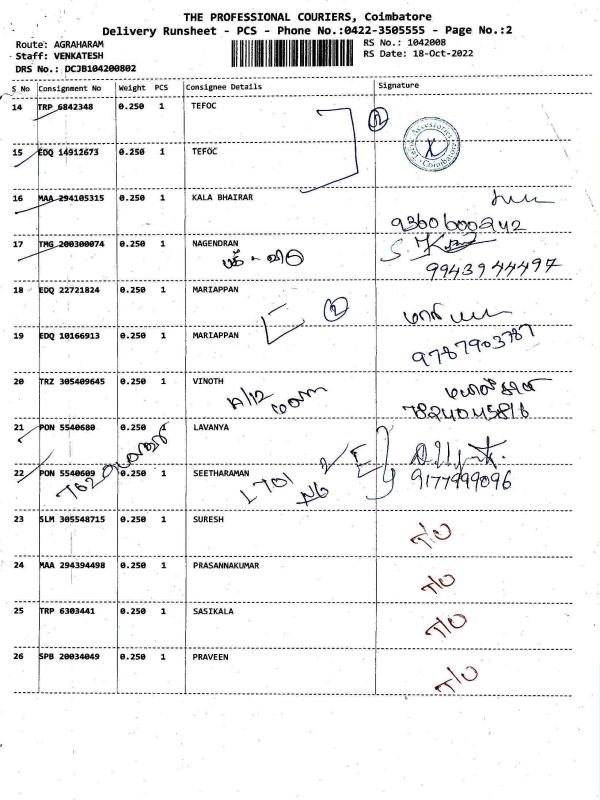 THE PROFESSIONAL COURIERS, Coimbatore
Delivery Runsheet - PCS - Phone No.:0422-3505555 - Page No.:2
Route: AGRAHARAM
Staff: VENKATESH
DRS No.: DCJB104200802
RS No.: 1042008
RS Date: 18-Oct-2022
S No Consignment No Weight PCS Consignee Details Signature
14 TRP 6842348 0.250 1 TEFOC
2
15 EDQ 14912673 0.250 1 TEFOC
Coimbatore
16 MAA 294105315 0.250 1 KALA BHAIRAR
17 TMG 200300074 0.250 1 NAGENDRAN
9943944497
18 EDQ 22721824 0.250 1 MARIAPPAN
2
19 EDQ 10166913 0.250 1 MARIAPPAN
9787903787
20 TRZ 305409645 0.250 1 VINOTH
A/12
7824045816
21 PON 5540680 0.250 1 LAVANYA
T02
22 PON 5540609 0.250 1 SEETHARAMAN
L701
N6
9177999096
23 SLM 305548715 0.250 1 SURESH
24 MAA 294394498 0.250 1 PRASANNAKUMAR
25 TRP 6303441 0.250 1 SASIKALA
26 SPB 20034049 0.250 1 PRAVEEN